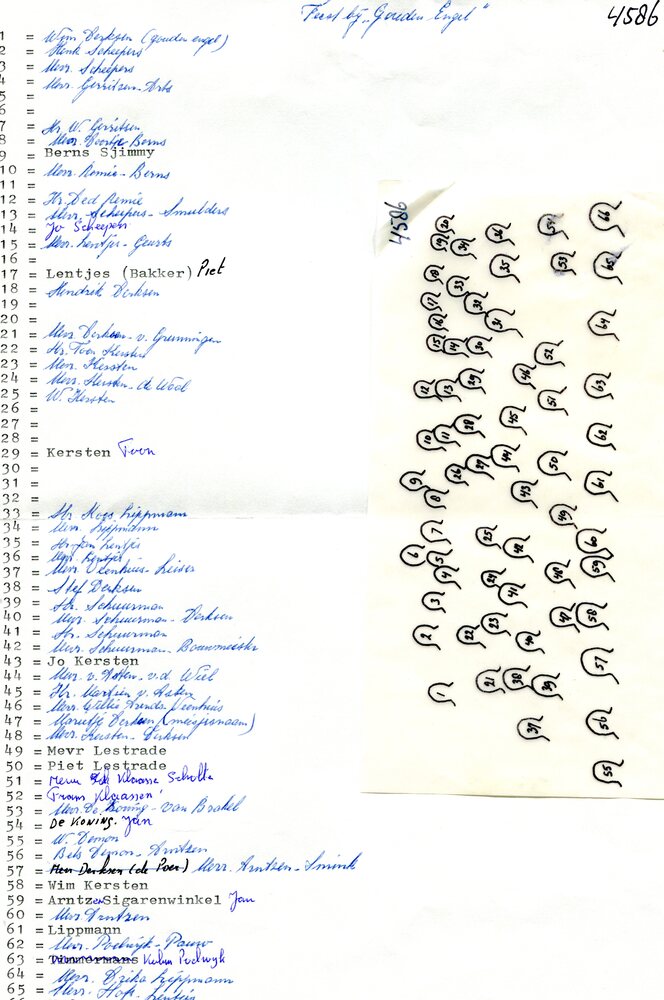 Feest bij "Gouden Engel" 4586
1 = Wim Derksen (gouden engel)
2 = Henk Scheepers
3 = Mevr. Scheepers
4 = Mevr. Gerritzen-Arts
5 =
6 =
7 = Hr W. Gerritsen
8 = Mevr. Berns
9 = Berns Sjimmy
10 = Mevr. Remie-Berns
11 =
12 = Hr. Ded Remie
13 = Mevr. Scheepers-Smulders
14 = Jo Scheepers
15 = Mevr. Lentjes-Geurts
16 =
17 = Lentjes (Bakker) Piet
18 = Hendrik Derksen
19 =
20 =
21 = Mevr Derksen-v. Grunningen
22 = Hr. Toon Kersten
23 = Mevr. Kersten
24 = Mevr. Kersten-de Waal
25 = W. Kersten
26 =
27 =
28 =
29 = Kersten Toon
30 =
31 =
32 =
33 = Hr. Moos Lippmann
34 = Mevr. Lippmann
35 = Hr. Jan Lentjes
36 = Mevr. Lentjes
37 = Mevr Veenhuis-Keiser
38 = Stef Derksen
39 = Hr. Schuurman
40 = Mevr. Schuurman-Derksen
41 = Hr. Schuurman
42 = Mevr. Schuurman-Bouwmeister
43 = Jo Kersten
44 = Mevr. v. Haten-v.d. Wiel
45 = Hr. Martien v. Haten
46 = Mevr. Willie Arends-Veenhuis
47 = Marietje Derksen (meisjesnaam)
48 = Mevr. Kersten-Derksen
49 = Mevr Lestrade
50 = Piet Lestrade
51 = Mevr Klaasse Scholte
52 = Frans Klaassen
53 = Mevr. De Koning-van Brakel
54 = De Koning. Jan
55 = W. Demon
56 = Bets Demon-Arntzen
57 = Mevr Derksen (de Poer) Mevr. Arntzen-Smink
58 = Wim Kersten
59 = Arntzen Sigarenwinkel Jan
60 = Mevr Arntzen
61 = Lippmann
62 = Mevr. Podwyk-Pauw
63 = Timmermans Podwyk
64 = Mevr. Drika Lippmann
65 = Mevr. Hop-Lentjes
4586
1 2 3 4 5 6 7 8 9 10 11 12 13 14 15 16 17 18 19 20
21 22 23 24 25 26 27 28 29 30 31 32 33 34
35 36 37 38 39 40 41 42 43 44 45 46
47 48 49 50 51 52 53 54
55 56 57 58 59 60 61 62 63 64 65 66